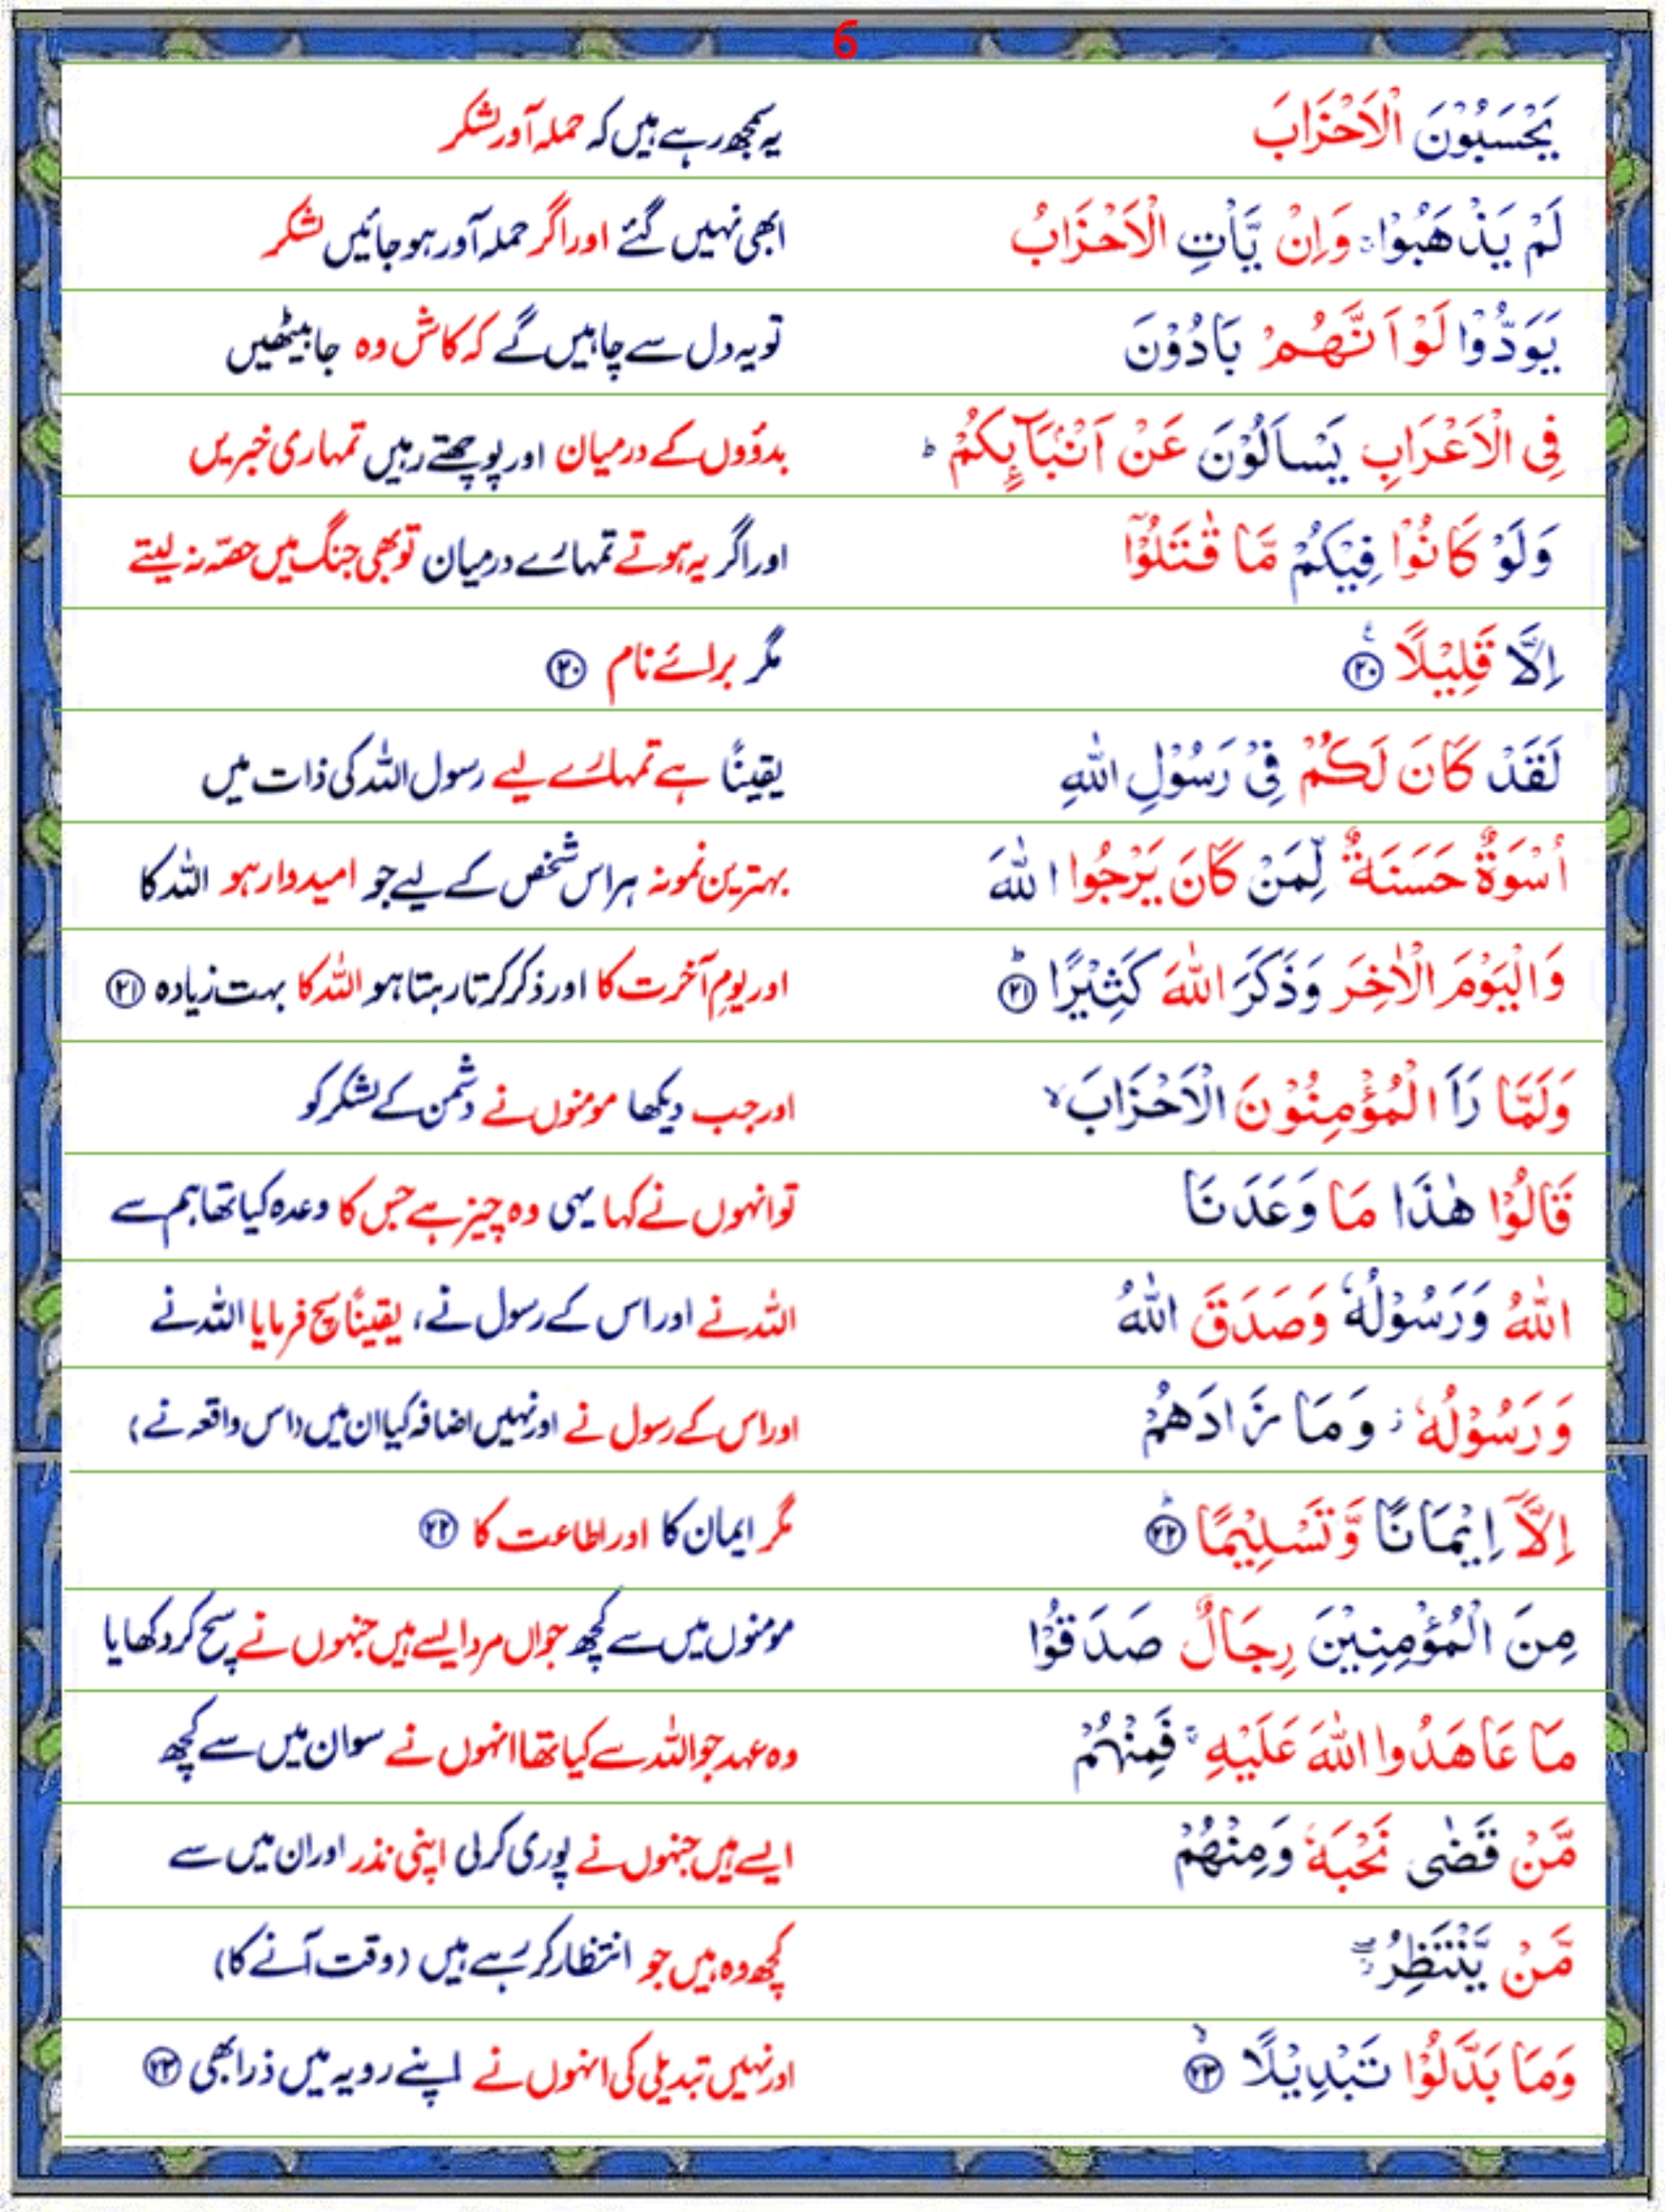 6
يَحْسَبُوْنَ الْاَحْزَابَ یہ سمجھ رہے ہیں کہ حملہ آور لشکر
لَمْ يَذْهَبُوْا ۚ وَاِنْ يَّاْتِ الْاَحْزَابُ ابھی نہیں گئے اور اگر حملہ آور ہو جائیں لشکر
يَوَدُّوْا لَوْ اَنَّهُمْ بَادُوْنَ تو یہ دل سے چاہیں گے کہ کاش وہ جا بیٹھیں
فِى الْاَعْرَابِ يَسْاَلُوْنَ عَنْ اَنْۢبَآئِكُمْ ؕ بدوؤں کے درمیان اور پوچھتے رہیں تمہاری خبریں
وَلَوْ كَانُوْا فِيْكُمْ مَّا قٰتَلُوْۤا اور اگر یہ ہوتے تمہارے درمیان تو بھی جنگ میں حصّہ نہ لیتے
اِلَّا قَلِيْلًا ۟ ﴿۲۰﴾ مگر برائے نام ﴿۲۰﴾
لَقَدْ كَانَ لَكُمْ فِىْ رَسُوْلِ اللّٰهِ یقیناً ہے تمہارے لیے رسول اللہ کی ذات میں
اُسْوَةٌ حَسَنَةٌ لِّمَنْ كَانَ يَرْجُوا اللّٰهَ بہترین نمونہ ہر اس شخص کے لیے جو امیدوار ہو اللہ کا
وَالْيَوْمَ الْاٰخِرَ وَذَكَرَ اللّٰهَ كَثِيْرًا ؕ ﴿۲۱﴾ اور یومِ آخرت کا اور ذکر کرتا رہتا ہو اللہ کا بہت زیادہ ﴿۲۱﴾
وَلَمَّا رَاَ الْمُؤْمِنُوْنَ الْاَحْزَابَ ۙ اور جب دیکھا مومنوں نے دشمن کے لشکر کو
قَالُوْا هٰذَا مَا وَعَدَنَا تو انہوں نے کہا یہی وہ چیز ہے جس کا وعدہ کیا تھا ہم سے
اللّٰهُ وَرَسُوْلُهٗ وَصَدَقَ اللّٰهُ اللہ نے اور اس کے رسول نے، یقیناً سچ فرمایا اللہ نے
وَرَسُوْلُهٗ ؗ وَمَا زَادَهُمْ اور اس کے رسول نے اور نہیں اضافہ کیا ان میں (اس واقعہ نے)
اِلَّاۤ اِيْمَانًا وَّتَسْلِيْمًا ؕ ﴿۲۲﴾ مگر ایمان کا اور اطاعت کا ﴿۲۲﴾
مِنَ الْمُؤْمِنِيْنَ رِجَالٌ صَدَقُوْا مومنوں میں سے کچھ جواں مرد ایسے ہیں جنہوں نے سچ کر دکھایا
مَا عَاهَدُوا اللّٰهَ عَلَيْهِ ۚ فَمِنْهُمْ وہ عہد جو اللہ سے کیا تھا انہوں نے سو ان میں سے کچھ
مَّنْ قَضٰى نَحْبَهٗ وَمِنْهُمْ ایسے ہیں جنہوں نے پوری کر لی اپنی نذر اور ان میں سے
مَّنْ يَّنْتَظِرُ ۖؗ کچھ وہ ہیں جو انتظار کر رہے ہیں (وقت آنے کا)
وَمَا بَدَّلُوْا تَبْدِيْلًا ۙ ﴿۲۳﴾ اور نہیں تبدیلی کی انہوں نے اپنے رویہ میں ذرا بھی ﴿۲۳﴾